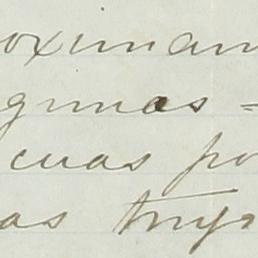 oximan
gunas =
cuas po
as tryo